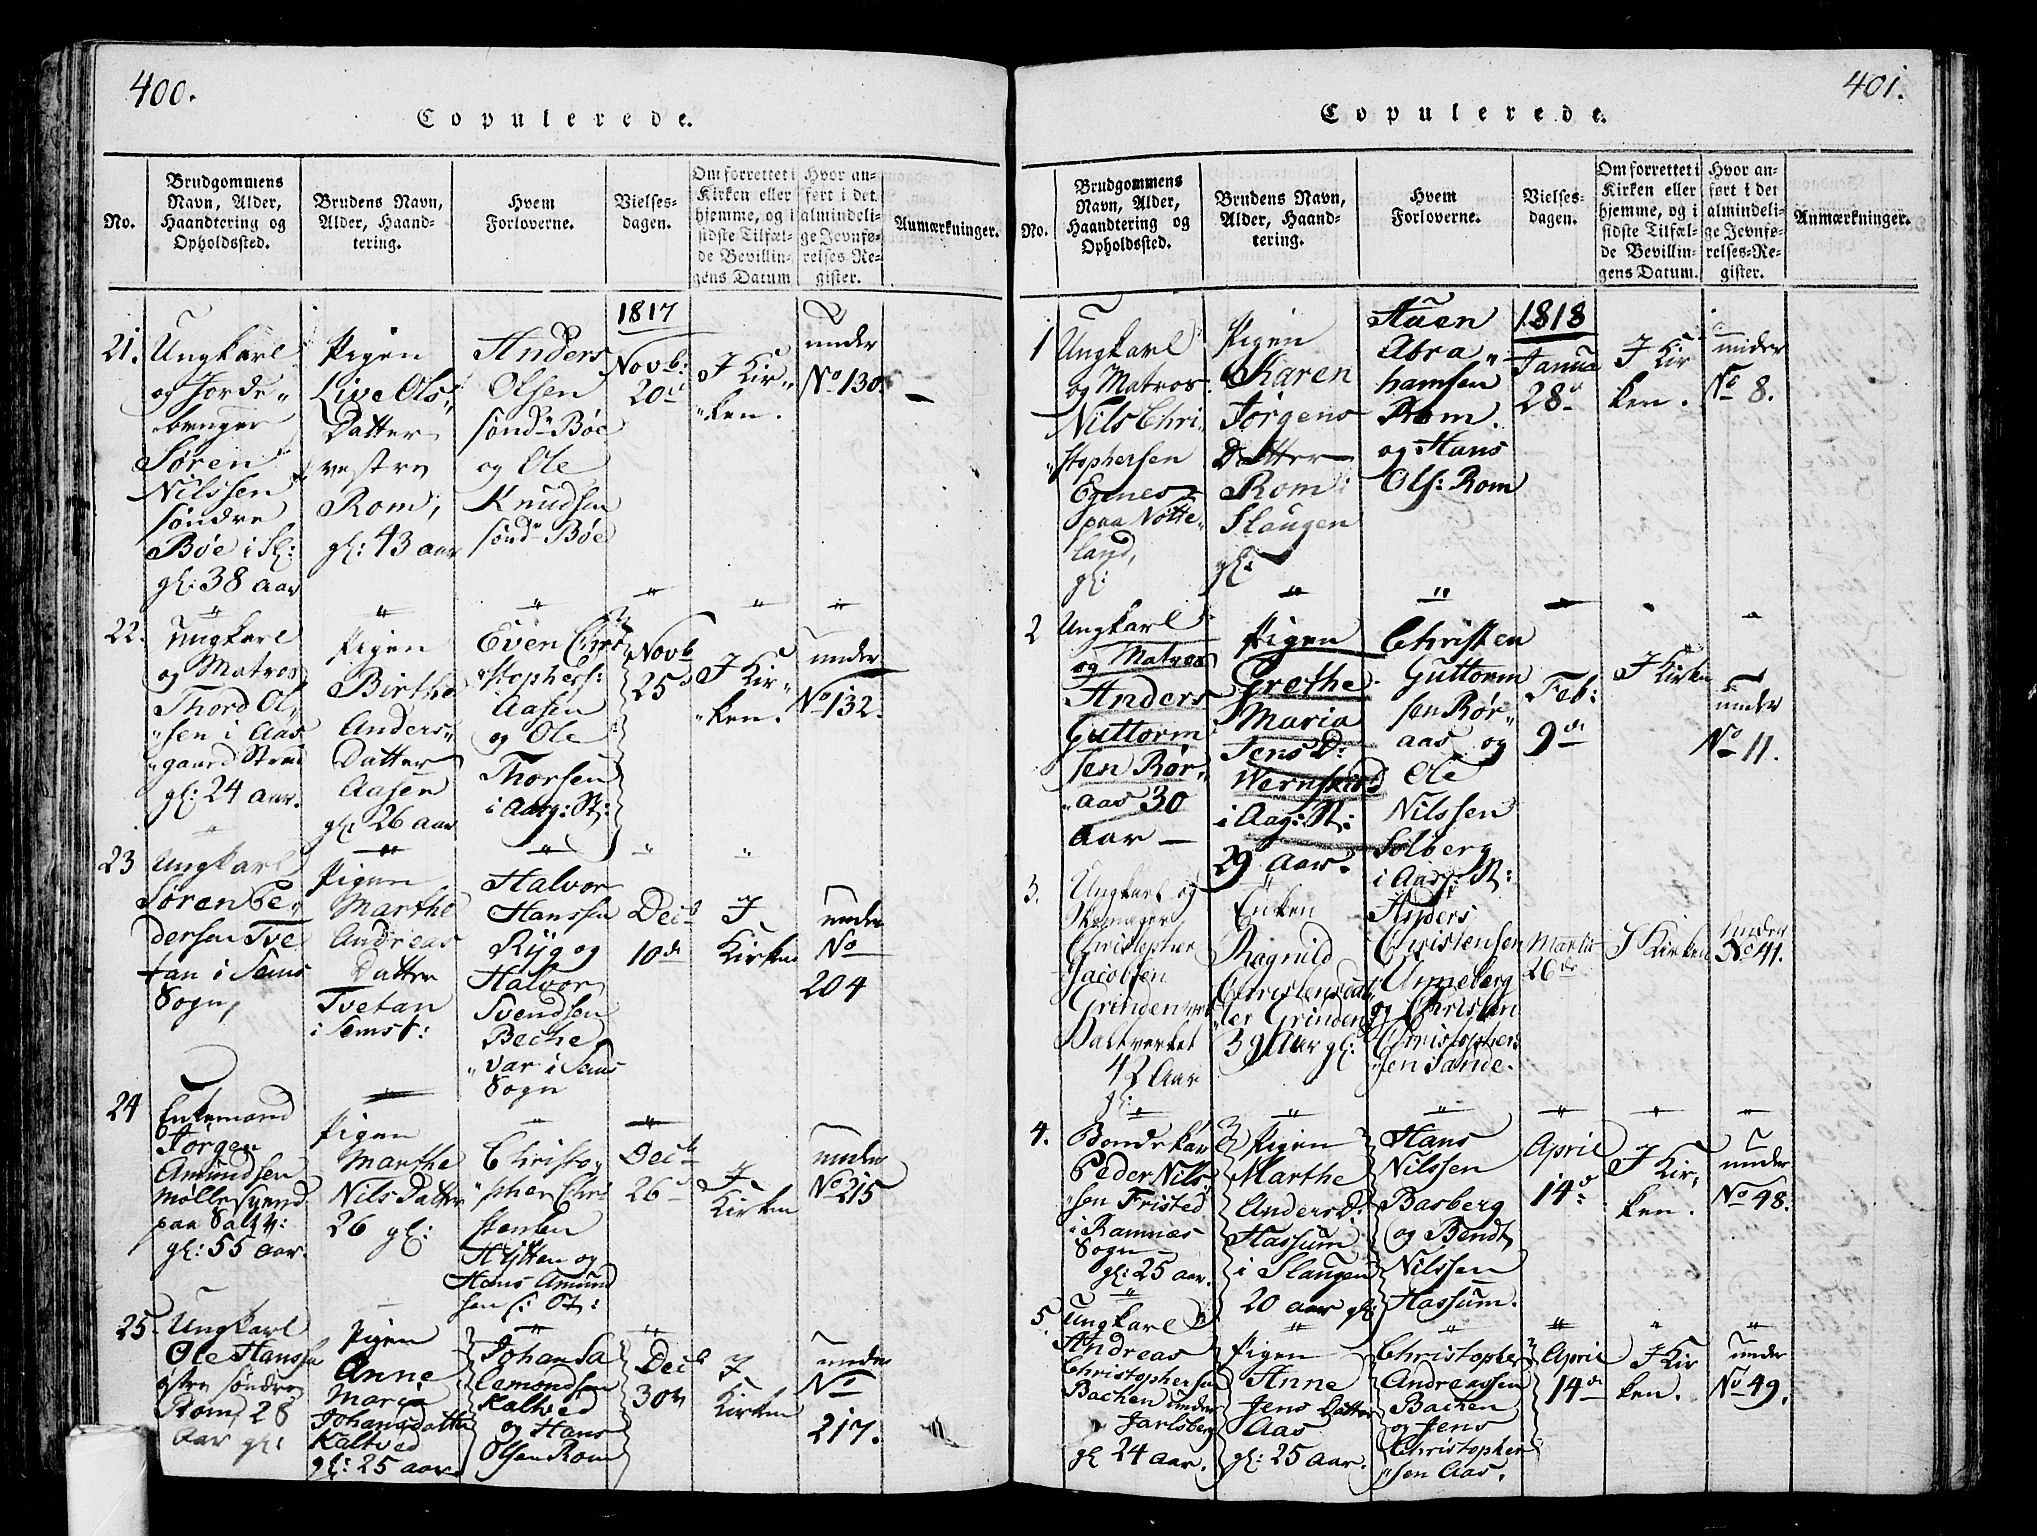 400.
Copulerede.
No.
Brudgommens
Navn, Alder,
Haandtering og
Opholdssted.
Brudens Navn,
Alder, Haand-
tering.
Hvem
Forloverne.
Vielses-
dagen.
Om forrettet i
Kirken eller
hjemme, og i
sidste Tilfæl-
de Bevillin-
gens Datum
Hvor an-
ført i det
almindeli-
ge Jevnfø-
relses-Re-
gister.
Anmærkninger.
1817
21.
Ungkarl
og Jorde„
bruger
Søren
Nilssen
søndre
Bøe i Sl:
gl: 38 aar
Pigen
Live Ols„
Datter
vestre
Rom,
gl: 43 aar
Anders
Olsen
sønd Bøe
og Ole
Knudsen
sønd Bøe
Novb:
20d
I Kir„
„ken.
under
No 130
22.
Ungkarl
og Matros
Thord Ol„
„sen i Aas
„gaard Strand
gl: 24 aar.
Pigen
Birthe
Anders„
Datter
Aasen
gl: 26 aar
Even Chri
„stophers:
Aasen
og Ole
Thorsen
i Aarg: St:
Novb
25d
I Kir„
„ken.
under
No 132.
23
Ungkarl
Søren Pe„
dersen Tve
tan i Sems
Sogn,
Pigen
Marthe
Andreas
Datter
Tvetan
i Sems S:
Halvor
Hanssen
Ryg og
Halvor
Svendsen
Beche„
„var i Sems
Sogn
Decb
10de
I
Kirken
under
No
204
24
Enkemand
Jørgen
Amundsen
Møllesvend
paa Salt V:
gl: 55 aar.
Pigen
Marthe
Nils Datter
26 gl:
Christo„
„pher Chri
stensen
Hytten og
Hans Amund
sen
Decb
26d
I
Kirken
under
No 215
25.
Ungkarl
Ole Hanssen
søndre
Rom, 28
Aar gl:
Pigen
Anne
Maria
Johansdatter
Kaltved
gl: 25 aar
Johan Sa
lemondsen
Kaltved
og Hans
Olsen Rom
Decb
30te
I
Kirken
under
No
217.
401.
Copulerede.
No.
Brudgommens
Navn, Alder,
Haandtering og
Opholdssted.
Brudens Navn,
Alder, Haand-
tering.
Hvem
Forloverne.
Vielses-
dagen.
Om forrettet i
Kirken eller
hjemme, og i
sidste Tilfæl-
de Bevillin-
gens Datum.
Hvor an-
ført i det
almindeli-
ge Jevnfø-
relses-Re-
gister.
Anmærkninger.
1818
1
Ungkarl
og Matros
Nils Chri„
„stophersen
Egenes
paa Nøtte„
land,
gl:
Pigen
Karen
Jørgens
Datter
Rom i
Slaugen
gl:
Abra„
hamsen
Rom.
og Hans
Ols: Rom
Janua
28d
I Kir
ken.
under
No 8.
2
Ungkarl
og Matros
Anders
Guttorm
sen Rør„
„aas 30
Aar —
Pigen
Grethe
Maria
Jens D:
Wernskud
i Aag: St:
29 Aar.
Christen
Guttorm
sen Rør„
aas og
Ole
Nilssen
Solberg
i Aasg: St:
Feb:
9de
I Kirken
under
No 11.
3.
Ungkarl og
Skomager
Christopher
Jacobsen
Grinden ved
Saltverket
42 Aar
gl:
Enken
Ragnild
Christensdat
ter Grinden
39 Aar gl:
Anders
Christensen
Unneberg
og Christen
Christopher
sen Sande.
Martii
26de
I Kirken
Under
No 41.
4.
Bondekarl
Peder Nils„
„sen Fristed
i Ramnæs
Sogn
gl: 25 aar.
Pigen
Marthe
Anders D:
Hassum
i Slaugen
20 aar gl:
Hans
Nilssen
Basberg
og Bendt
Nilssen
Hassum.
April
14d
I Kir„
ken.
under
No 48.
5.
Ungkarl
Andreas
Christophersen
Bachen under
Jarlsberg
gl 24 aar.
Pigen
Anne
Jens Datter
Aas
gl: 25 aar.
Christopher
Andreassen
Bachen
og Jens
Christopher
„sen Aas.
April
14de
I Kir
ken.
under
No 49.